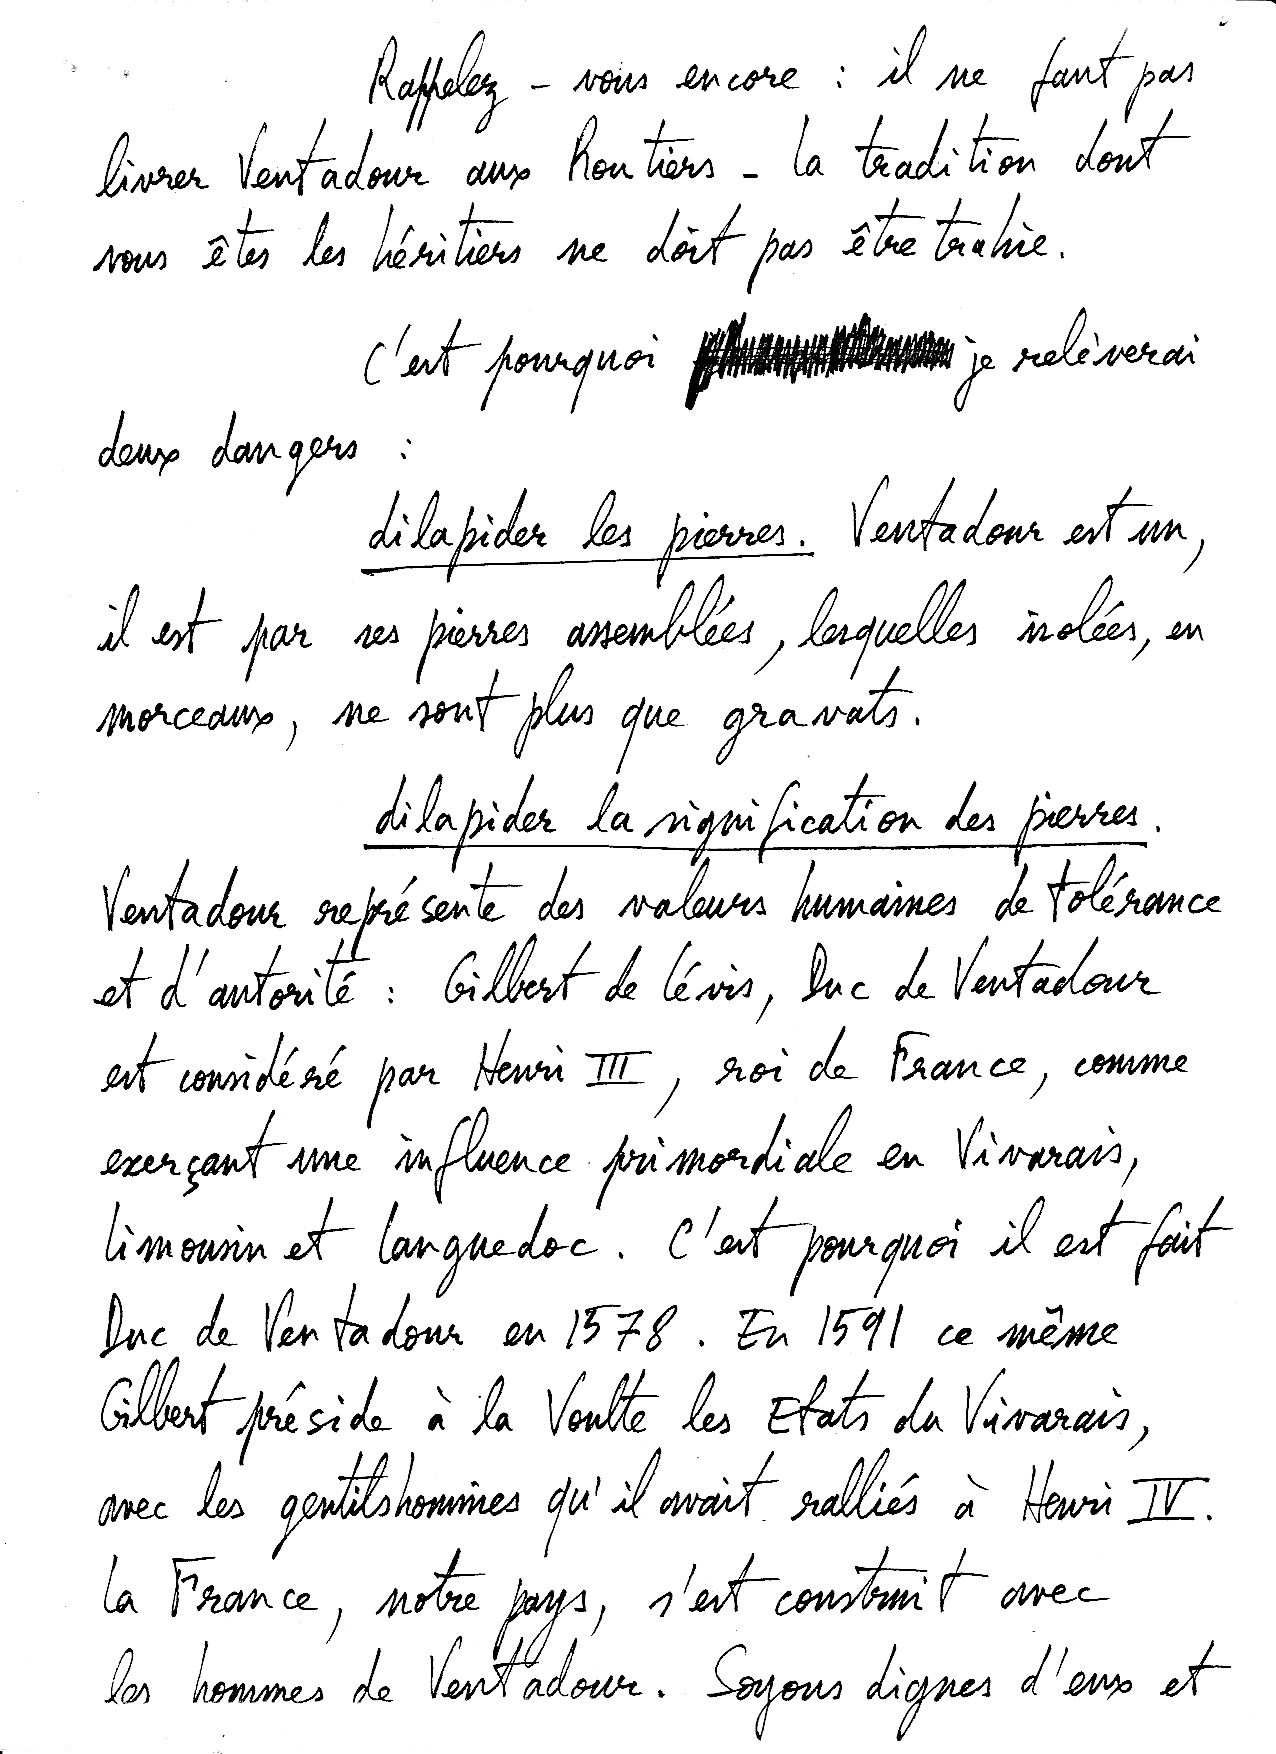 Rappelez-vous encore : il ne faut pas
livrer Ventadour aux Routiers - la tradition dont
vous êtes les héritiers ne doit pas être trahie.
C'est pourquoi je relèverai
deux dangers :
dilapider les pierres. Ventadour est un,
il est par ses pierres assemblées, lesquelles isolées, en
morceaux, ne sont plus que gravats.
dilapider la signification des pierres.
Ventadour représente des valeurs humaines de tolérance
et d'autorité : Gilbert de Lévis, Duc de Ventadour
est considéré par Henri III, roi de France, comme
exerçant une influence primordiale en Vivarais,
Limousin et Languedoc. C'est pourquoi il est fait
Duc de Ventadour en 1578. En 1591 ce même
Gilbert préside à la Voulte les Etats du Vivarais,
avec les gentilshommes qu'il avait ralliés à Henri IV.
La France, notre pays, s'est construit avec
les hommes de Ventadour. Soyons dignes d'eux et